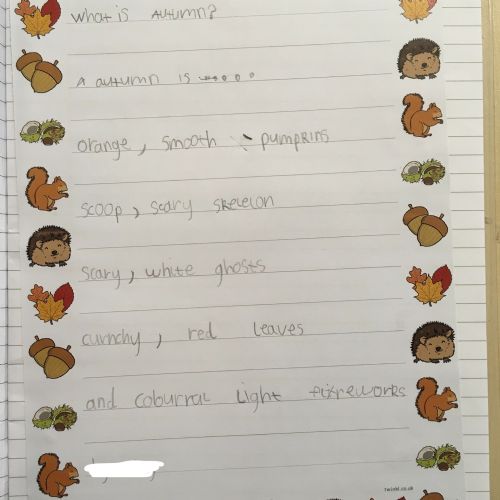 What is AUtUmn?
A autumn is
orange, smooth pumpkins
scoop, scary skeleton
scary, white ghosts
curnchy, red leaves
and coburral Light fireworks
twinkl.co.uk